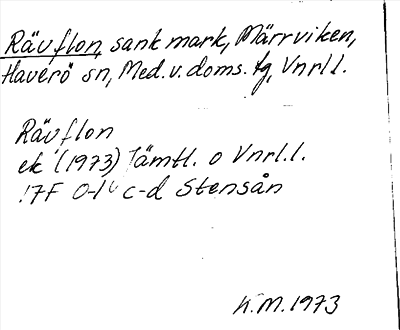 Räuflon, sank mark, Märrviken,
Haverö sn, Med. v. doms. fg, Vnrll.
Räuflon
ek (1973) Jämtl. o Vnrl.l.
17F 0-1 c-d Stensån
K.M. 1973